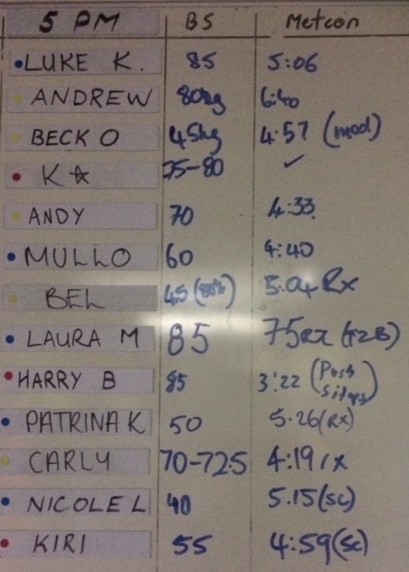 5 PM BS Metcon
LUKE K. 85 5:06
ANDREW 80kg 6:40
BECK O 45kg 4:57 (mod)
K☆ 75-80 ✓
ANDY 70 4:33
MULLO 60 4:40
BEL 45 (80%) 5:04 Rx
LAURA M 85 75Rx (T2B)
HARRY B 85 3:22 (Push Situps)
PATRINA K 50 5.26 (RX)
CARLY 70-72.5 4:19 rx
NICOLE L 40 5.15 (sc)
KIRI 55 4:59 (sc)